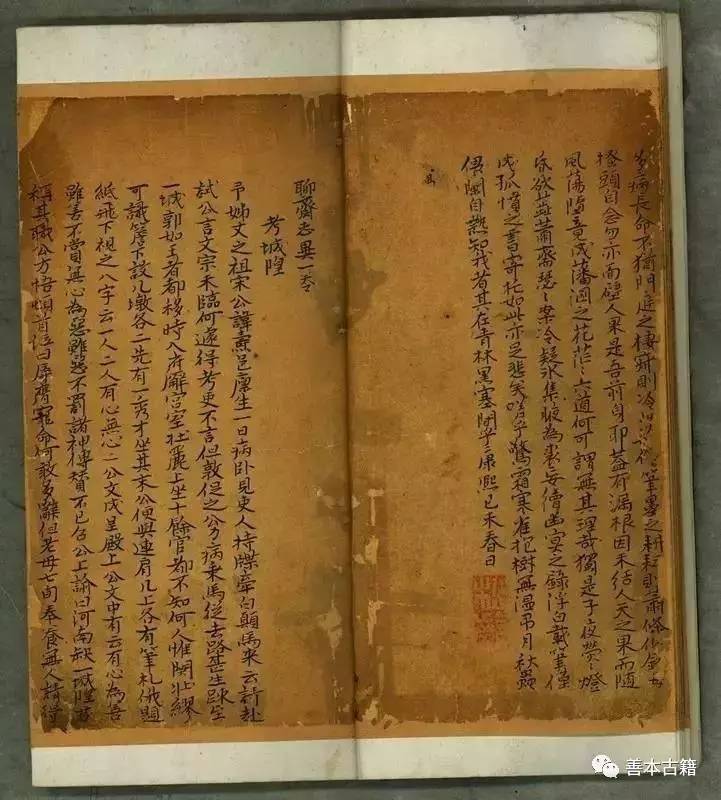 病長命不猶門庭之棲寂則冷淡如僧筆墨之耕耘則蕭條似
搔頭自念勿亦面壁人果是吾前身耶蓋有漏根因未結人天之果而隨
風蕩墮竟成藩溷之花茫〻六道何可謂無其理哉獨是子夜熒〻燈
昏欲蕊蕭齋瑟〻案冷疑冰集腋為裘妄續幽冥之錄浮白載筆僅
成孤憤之書寄托如此亦足悲矣嗟乎驚霜寒雀抱樹無溫弔月秋蟲
偎闌自熱知我者其在青林黑塞間乎康熙己未春日
聊齋志異一卷
考城隍
予姊丈之祖宋公諱燾邑廩生一日病卧見吏人持牒牽白顛馬來云請赴
試公言文宗未臨何遽得考吏不言但敦促之公力病乘馬從去路甚生踈至
一城郭如王者都移時入府廨宮室壯麗上坐十餘官都不知何人惟關壯繆
可識簷下設几墩各二先有一秀才坐其末公便與連肩几上各有筆札俄題
紙飛下視之八字云一人二人有心無心二公文成呈殿上公文中有云有心為善
雖善不賞無心為惡雖惡不罰諸神傳贊不已召公上諭曰河南缺一城隍君
稱其職公方悟頓首泣曰辱膺寵命何敢多辭但老母七旬奉養無人請得
善本古籍